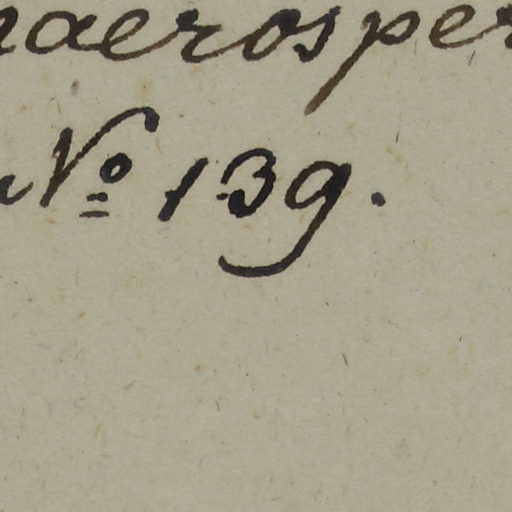 haerosper
Nº 139.